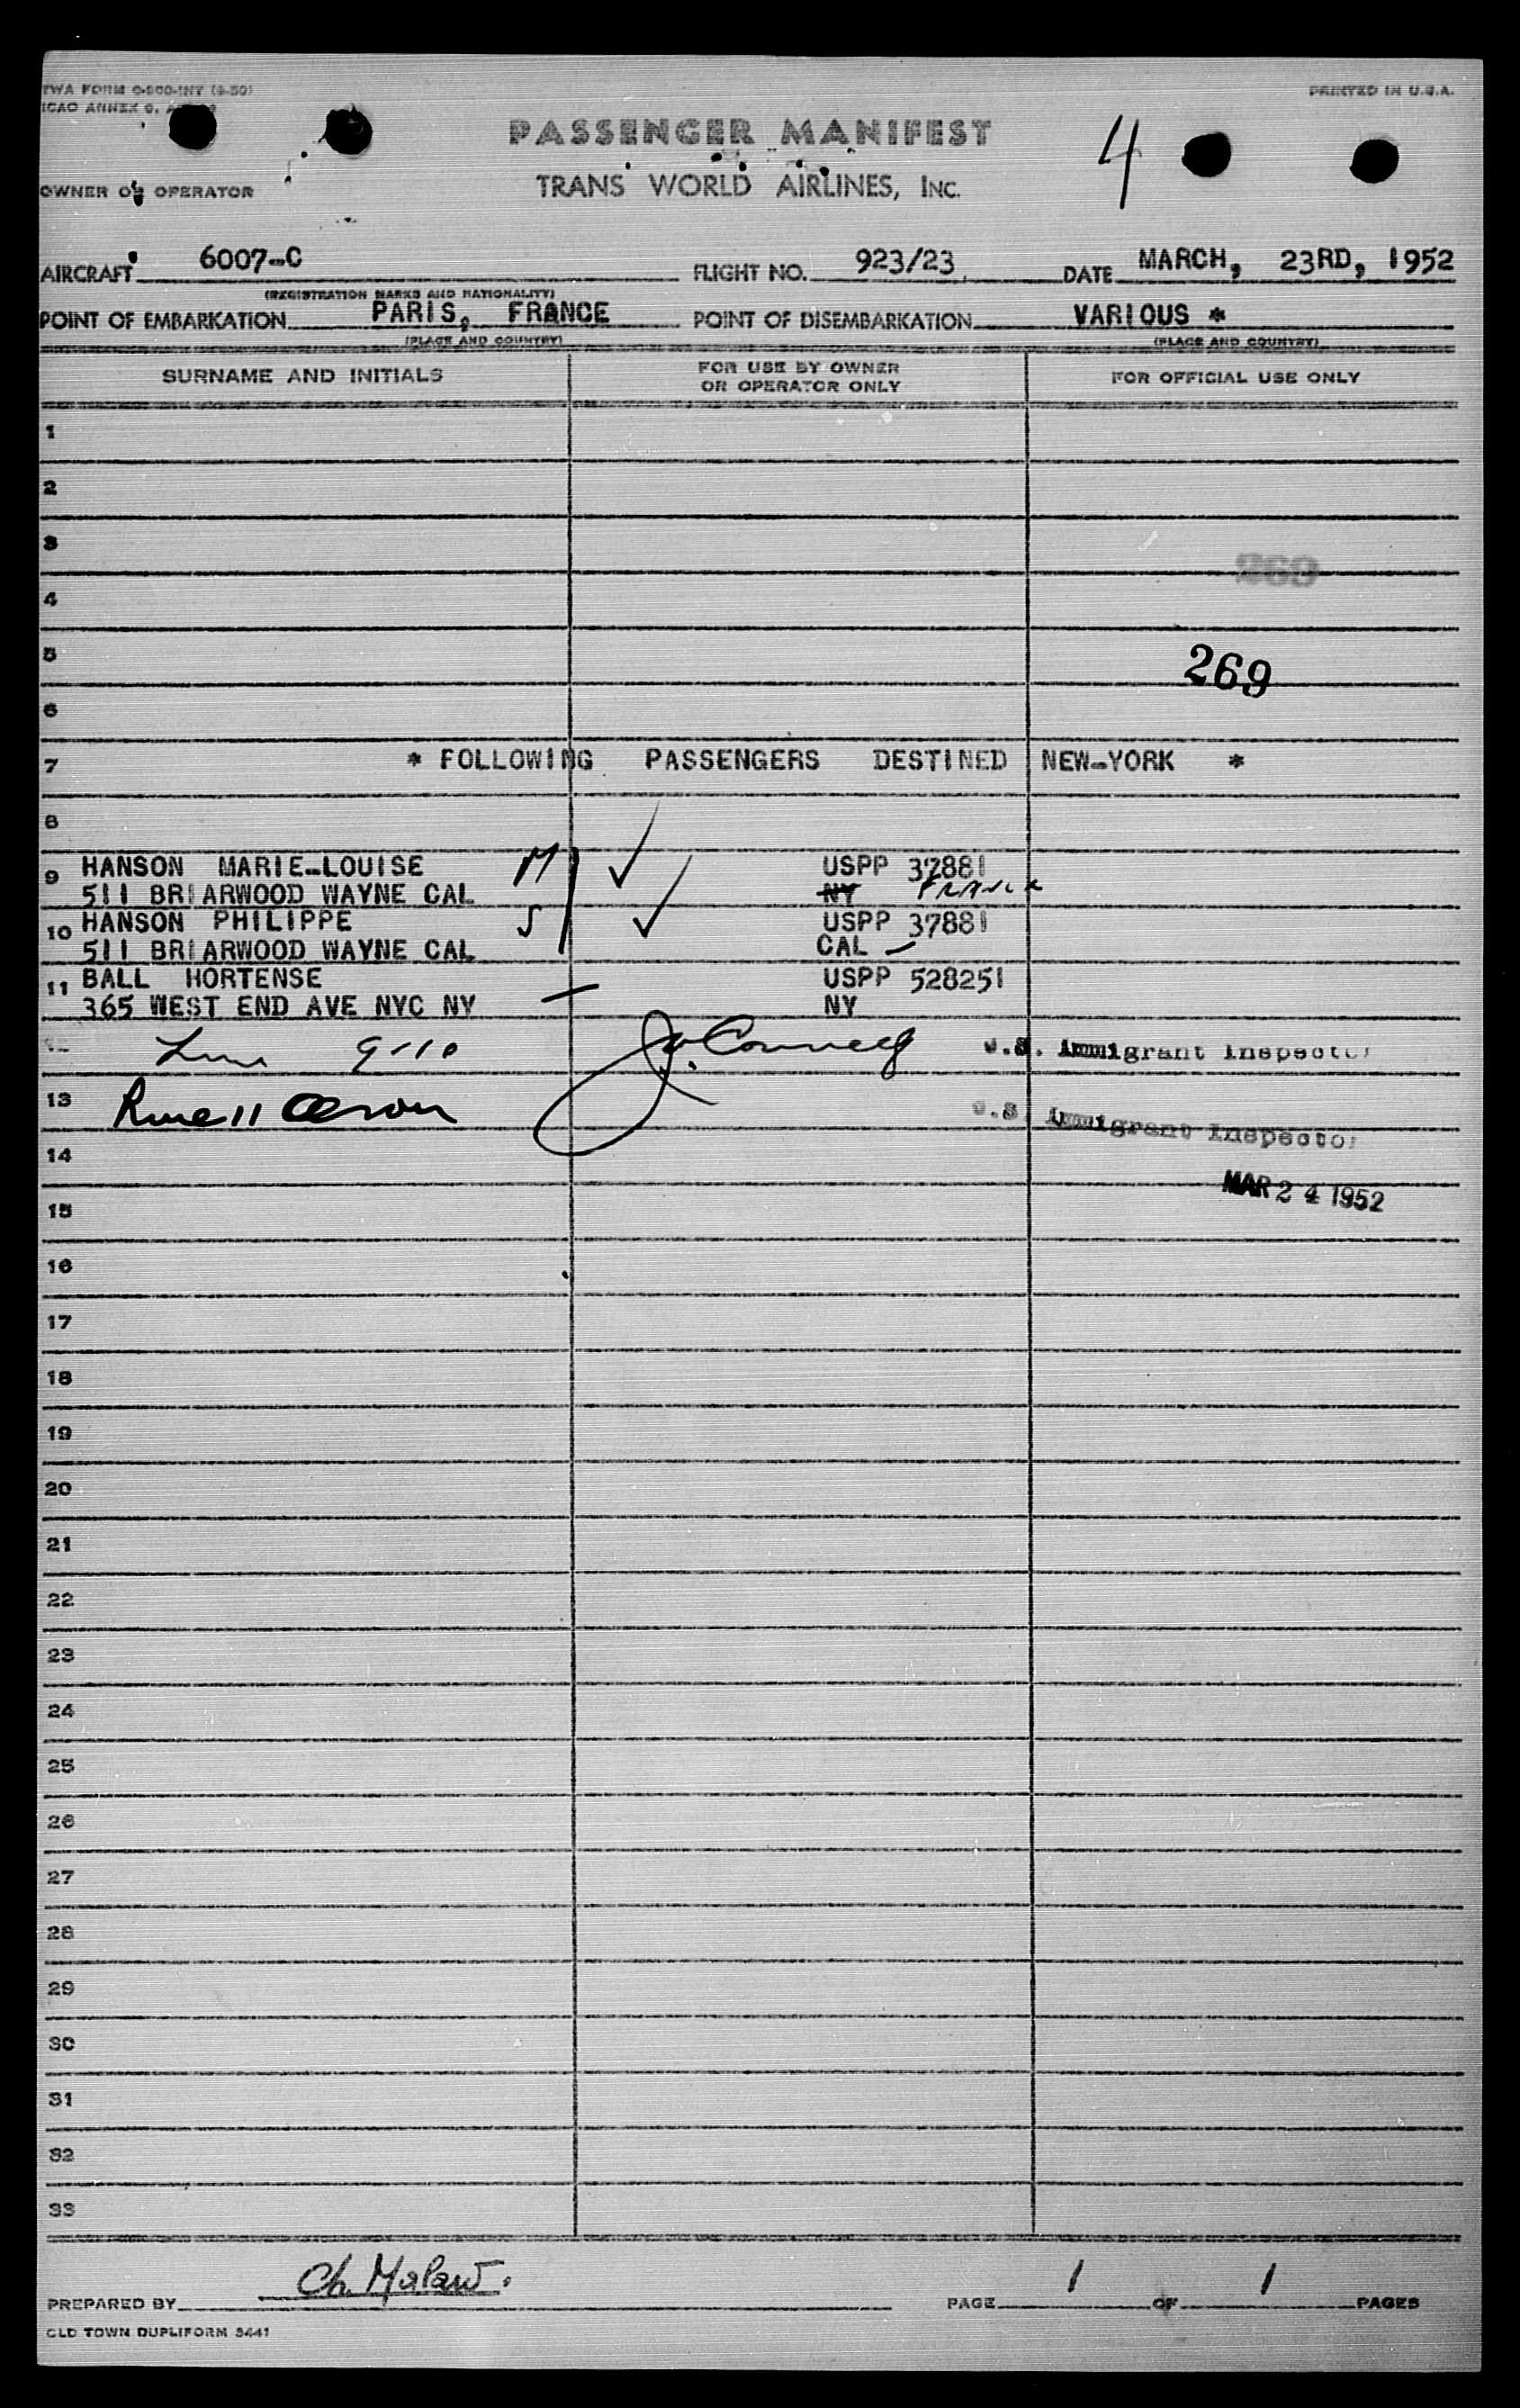 TWA FORM
ICAO ANNEX 9,
PRINTED IN U.S.A.
PASSENGER MANIFEST
4
OWNER OR OPERATOR
TRANS WORLD AIRLINES, INC.
AIRCRAFT 6007-C FLIGHT NO. 923/23 DATE MARCH, 23RD, 1952
(REGISTRATION MARKS AND NATIONALITY)
POINT OF EMBARKATION PARIS, FRANCE POINT OF DISEMBARKATION VARIOUS *
(PLACE AND COUNTRY) (PLACE AND COUNTRY)
SURNAME AND INITIALS FOR USE BY OWNER OR OPERATOR ONLY FOR OFFICIAL USE ONLY
1
2
3
269
4
5
269
6
7 * FOLLOWING PASSENGERS DESTINED NEW-YORK *
8
9 HANSON MARIE-LOUISE M USPP 37881
511 BRIARWOOD WAYNE CAL NY FRANCE
10 HANSON PHILIPPE S USPP 37881
511 BRIARWOOD WAYNE CAL CAL
11 BALL HORTENSE USPP 528251
365 WEST END AVE NYC NY NY
U.S. Immigrant Inspector
13
U.S. Immigrant Inspector
14
MAR 24 1952
15
16
17
18
19
20
21
22
23
24
25
26
27
28
29
30
31
32
33
PREPARED BY PAGE 1 OF 1 PAGES
OLD TOWN DUPLIFORM 5441